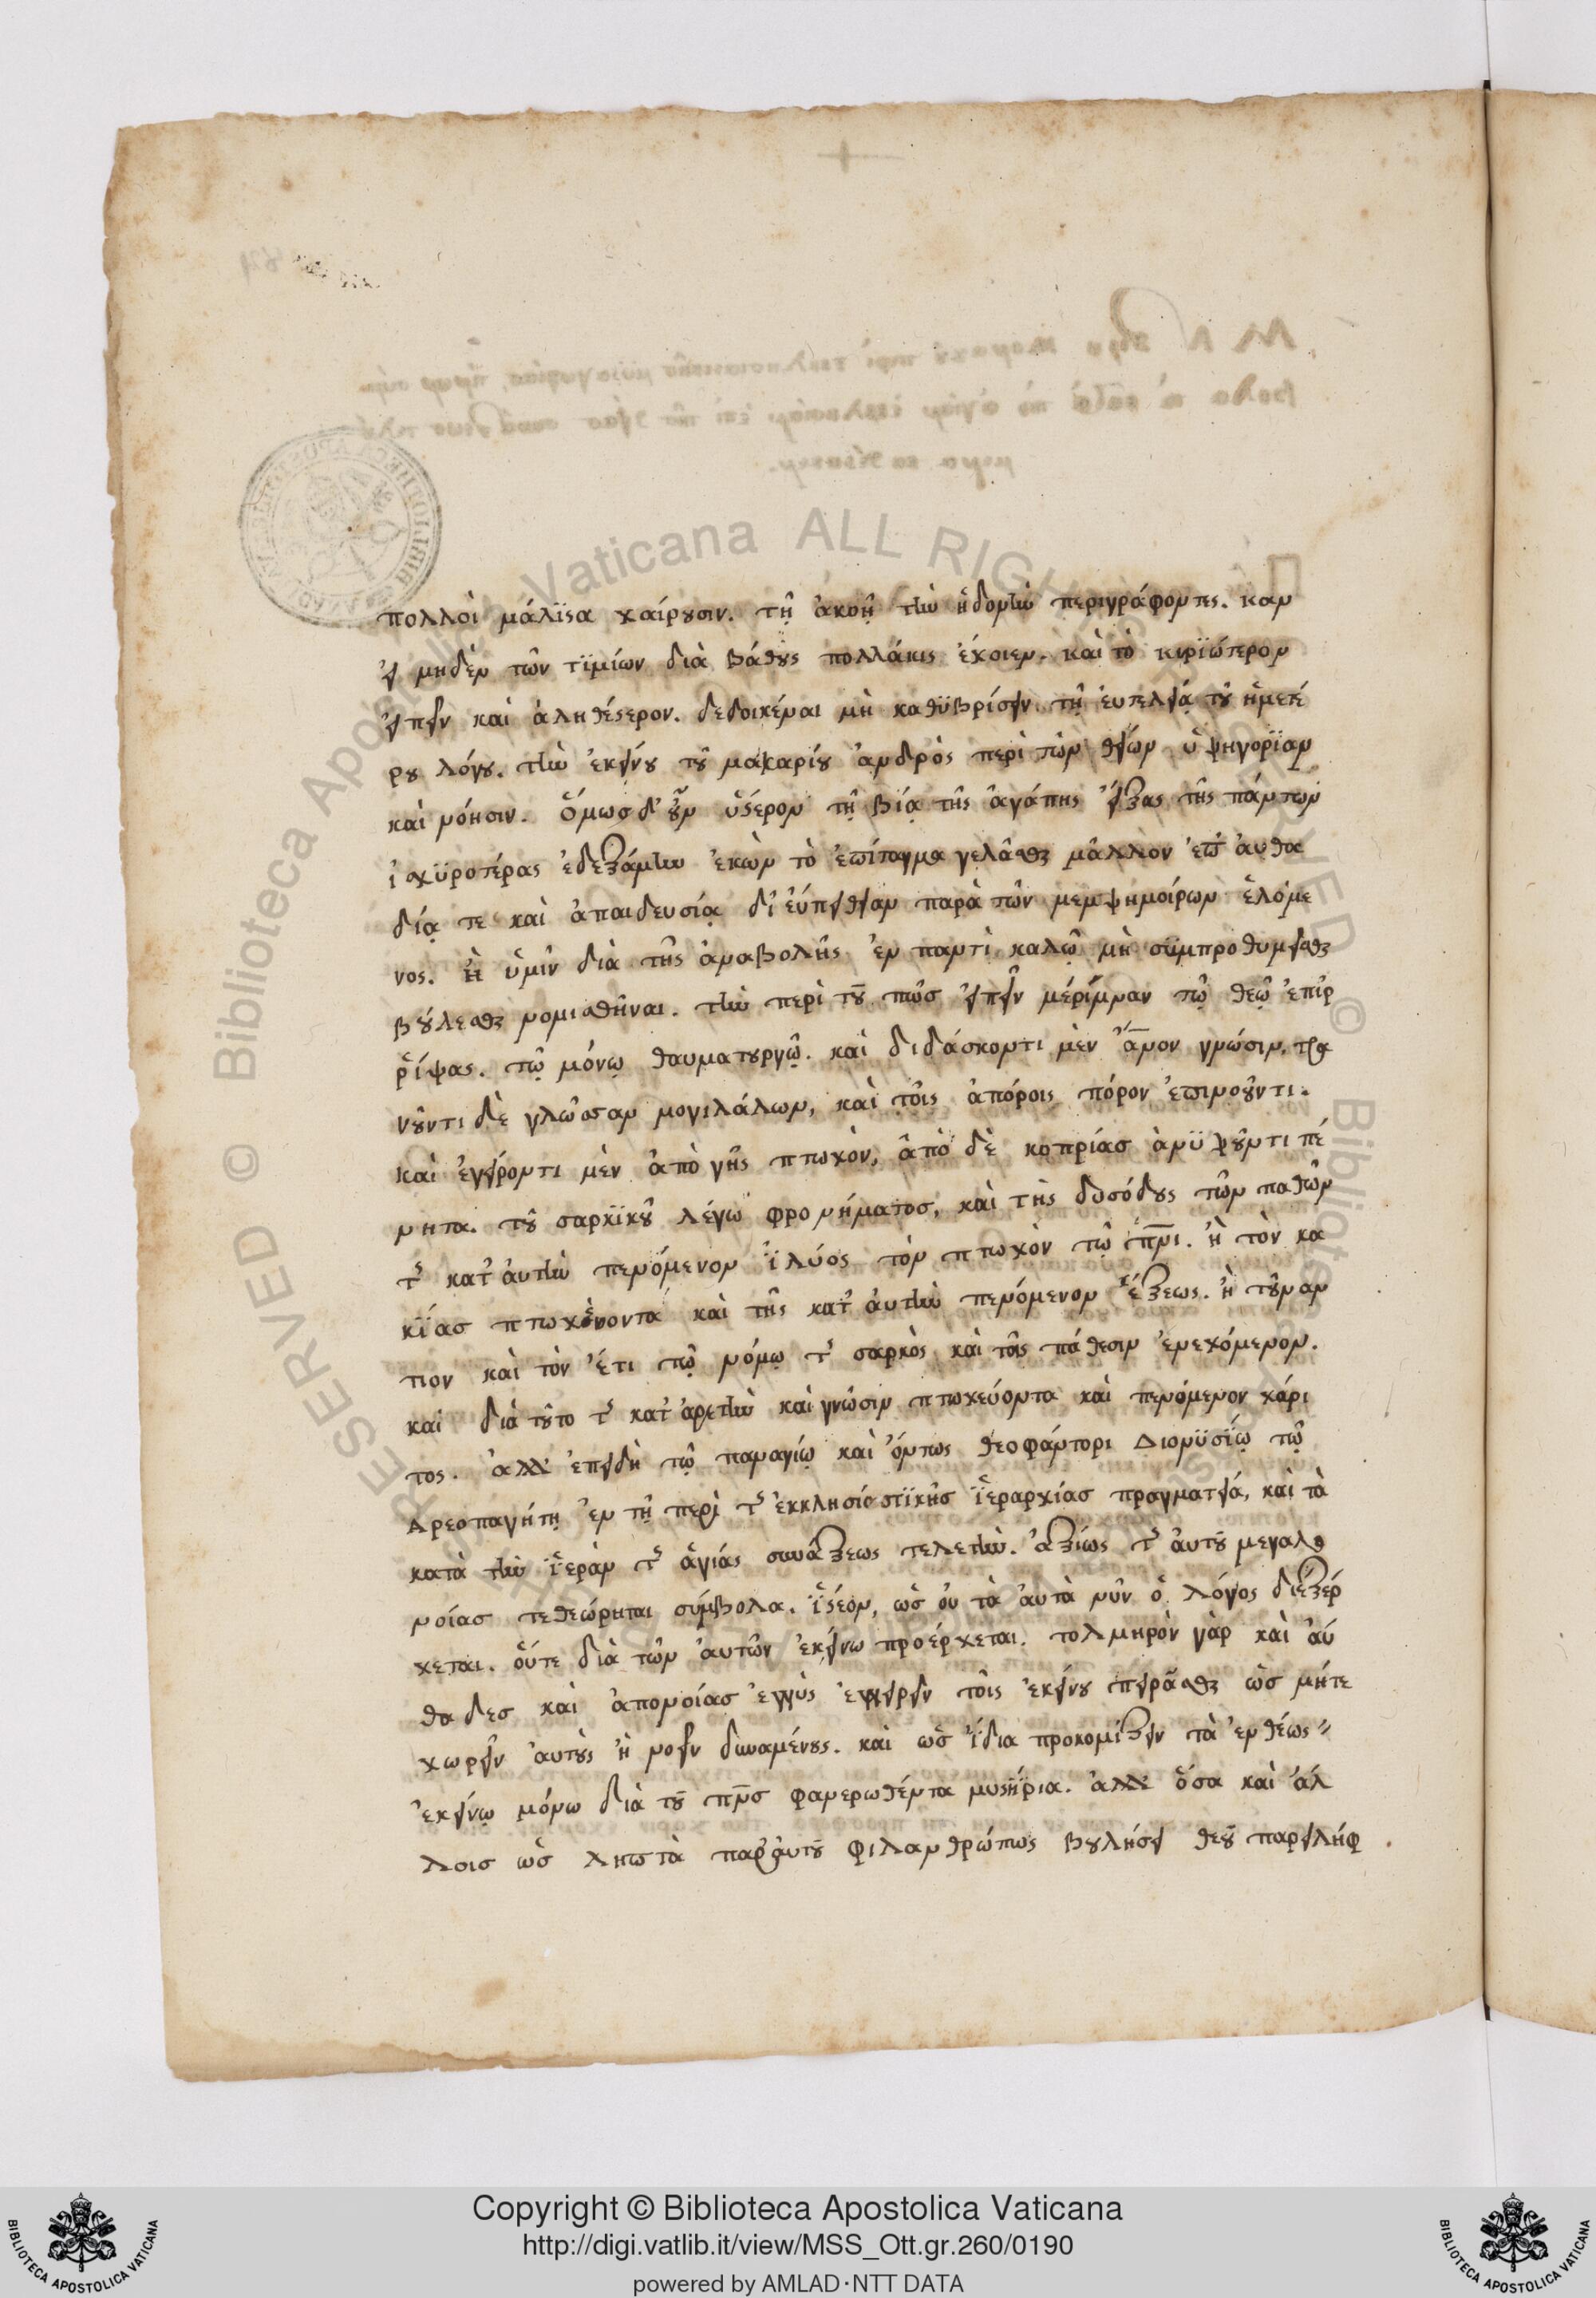 πολλοὶ μάλϊστα χαίρουσιν. τῆ ἀκοῆ τὴν ἡδονὴν περιγράφοντες. κἀν
εἰ μηδὲν τῶν τϊμίων διὰ βάθους πολλάκις ἔχοιεν. καὶ τὸ κυρϊώτερον
εἰπεῖν καὶ ἀληθέστερον. δεδοικέναι μὴ καθϋβρίσειν τῆ εὐτελείᾳ τοῦ ἡμετέ
ρου λόγου. τὴν ἐκείνου τοῦ μακαρίου ἀνδρὸς περὶ τῶν θείων ὑψηγορϊαν
καὶ νόησιν. ὅμως δ' οὖν ὕστερον τῆ βίᾳ τῆς ἀγάπης εἴξας τῆς πάντων
ἰσχϋροτέρας ἐδεξάμην ἑκὼν τὸ ἐπίταγμα γελᾶσθαι μᾶλλον ἐπ' αὐθα
δίᾳ τε καὶ ἀπαιδευσίᾳ δι' εὐπείθειαν παρὰ τῶν μεμψημοίρων ἑλόμε
νος. ἢ ὑμῖν διὰ τῆς ἀναβολῆς ἐν παντὶ καλῶ μὴ σϋμπροθυμεῖσθαι
βούλεσθαι νομισθῆναι. τὴν περὶ τοῦ πῶσ εἰπεῖν μέριμναν τῶ θεῶ ἐπιρ
ρίψας. τῶ μόνῳ θαυματουργῶ. καὶ διδάσκοντι μὲν ἄνον γνῶσιν, τρα
νοῦντι δὲ γλῶσσαν μογιλάλων, καὶ τοῖς ἀπόροις πόρον ἐπινοοῦντι.
καὶ ἐγείροντι μὲν ἀπὸ γῆς πτωχὸν, ἀπὸ δὲ κοπρίασ ἀνϋψοῦντι πέ
νητα. τοῦ σαρκϊκοῦ λέγω φρονήματοσ, καὶ τῆς δυσόδους τῶν παθῶν
τῆς κατ' αὐτὴν πενόμενον ἰλύος τὸν πτωχὸν τῶ πνι. ἢ τὸν κα
κΐασ πτωχεύοντα καὶ τῆς κατ' αὐτὴν πενόμενον ἕξεως. ἢ τοῦναν
τιον καὶ τὸν ἔτι τῶ νόμῳ τῆς σαρκὸς καὶ τοῖς πάθεσιν ἐνεχόμενον.
καὶ διὰ τοῦτο τῆς κατ' ἀρετὴν καὶ γνῶσιν πτωχεύοντα καὶ πενόμενον χάρι
τος. ἀλλ' ἐπειδὴ τῶ παναγίῳ καὶ ὄντως θεοφάντορι Διονϋσίῳ τῶ
Ἀρεοπαγήτῃ ἐν τῆ περὶ τῆς ἐκκλησιαστϊκῆσ ἱεραρχίασ πραγματείᾳ, καὶ τὰ
κατὰ τὴν ἱερὰν τῆς ἁγίας συνάξεως τελετὴν. ἀξίως τῆς αὐτοῦ μεγαλο
νοίασ τεθεώρηται σύμβολα. ἱστέον, ὡς οὐ τὰ αὐτὰ νῦν ὁ λόγος διεξέρ
χεται. οὔτε διὰ τῶν αὐτῶν ἐκείνω προέρχεται. τολμηρὸν γὰρ καὶ αὔ
θαδεσ καὶ ἀπονοίασ ἐγγὺς ἐγχειρεῖν τοῖς ἐκείνου πειρᾶσθαι ὡς μήτε
χωρεῖν αὐτοὺς ἢ νοεῖν δυναμένους. καὶ ὡς ἴδια προκομίζειν τὰ ἐνθέως
ἐκείνῳ μόνω διὰ τοῦ πνσ φανερωθέντα μυστήρια. ἀλλ' ὅσα καὶ ἄλ
λοισ ὡς ληπτὰ παρ' αὐτοῦ φιλανθρώπως βουλήσει θεοῦ παρειλήφ
Copyright © Biblioteca Apostolica Vaticana
http://digi.vatlib.it/view/MSS_Ott.gr.260/0190
powered by AMLAD·NTT DATA
BIBLIOTECA APOSTOLICA VATICANA
BIBLIOTECA APOSTOLICA VATICANA